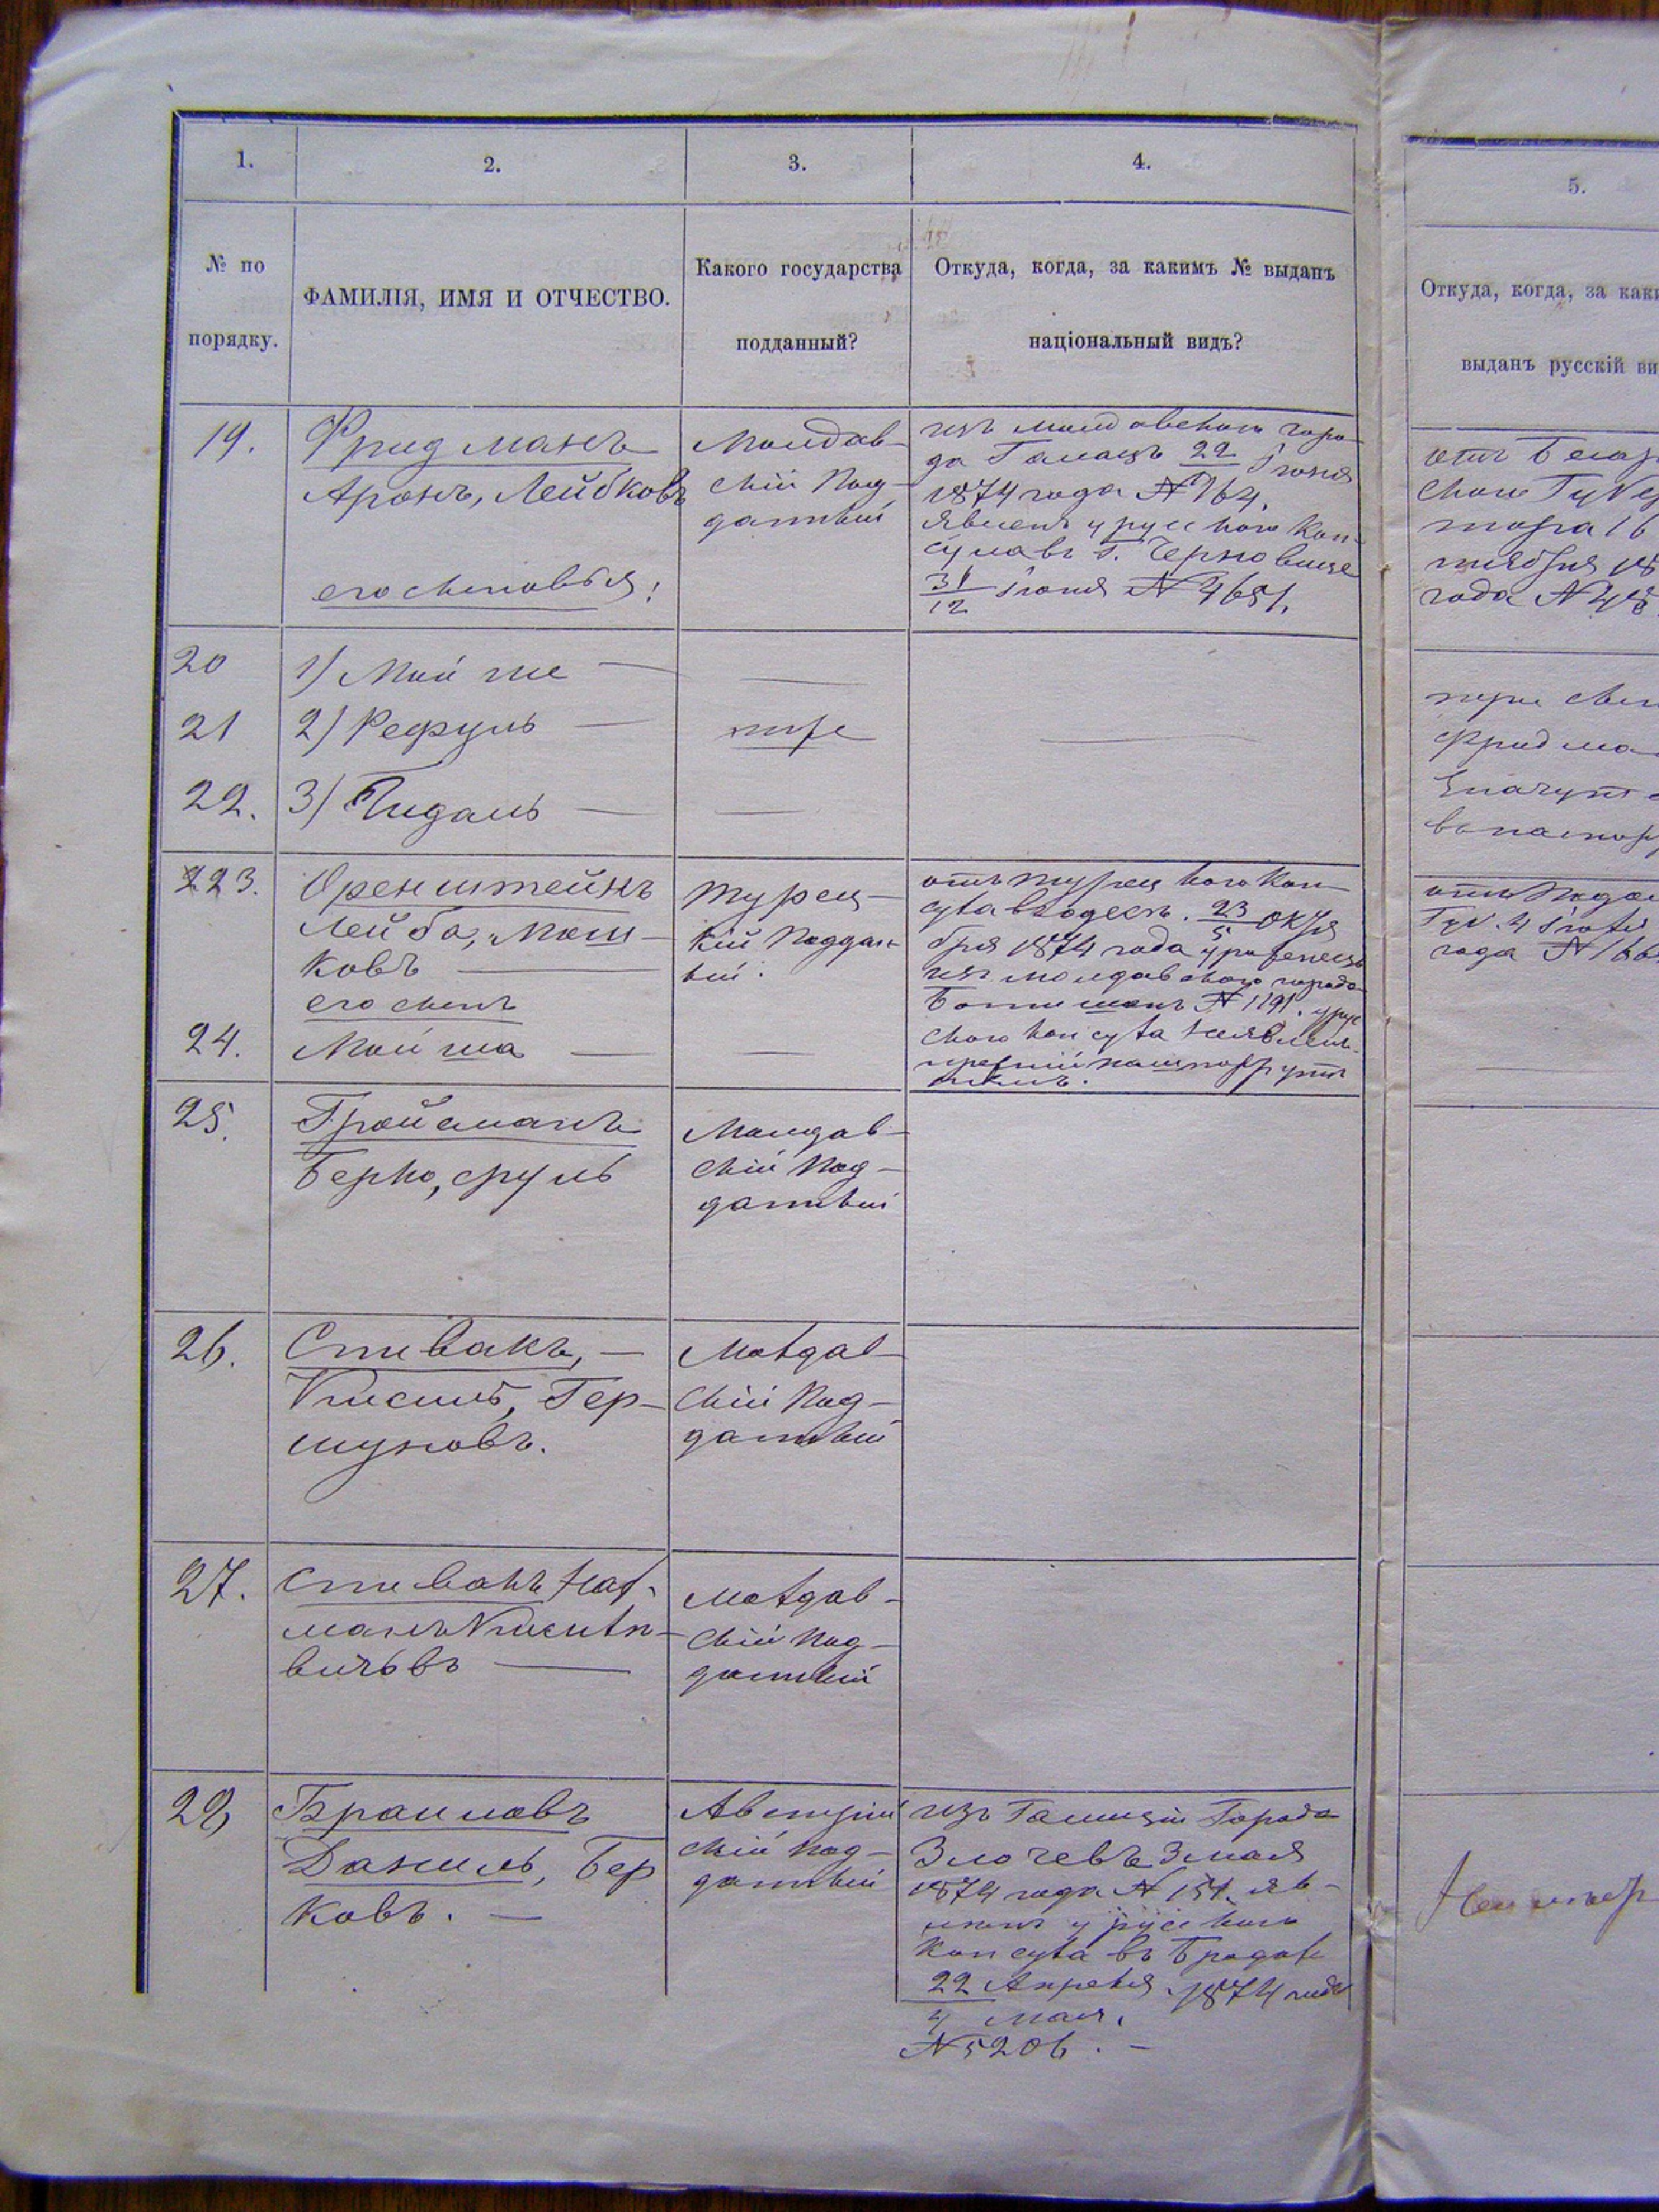 1.
2.
3.
4.
5.
№ по
порядку.
ФАМИЛІЯ, ИМЯ И ОТЧЕСТВО.
Какого государства
подданный?
Откуда, когда, за какимъ № выданъ
національный видъ?
Откуда, когда, за каки
выданъ русскій ви
19.
Фридманъ
Аронъ, Лейбковъ
его сыновья:
Молдав-
скій Под-
данный
изъ молдавскаго горо-
да Галацъ 22 Іюня
1874 года № 164.
явленъ у русскаго Кон-
сула въ г. Черновице
31/12 Іюня № 4651.
отъ
года №
20
1) Мойше —
21
2) Рефуль —
тоже
22.
3) Гидаль —
при
Фридма
значутъ
въ паспор
223.
Оренштейнъ
Лейба, Мош-
ковъ —
его сынъ
24.
Мойша —
Турец-
кій Поддан-
ный.
отъ турецкаго Кон-
сула в Одессѣ. 23/5 Октя
бря 1874 года уроженецъ
изъ молдавскаго города
Ботишанъ № 1191. у рус
скаго консула
отъ
Губ. 4
года № 166
25.
Гройсманъ
Берко, сруль
Молдав-
скій Под-
данный
26.
Спивакъ, —
Кисиль, Гер-
шуновъ.
Молдав-
скій Под-
данный
27.
Спивакъ Нах-
манъ
вичъвъ —
Молдав-
скій Под-
данный
28
Браиловъ
Даниль, Бер
ковъ. —
Австрій
скій под-
данный
изъ Галиціи Города
Злочевъ 3 мая
1874 года № 151. яв-
ленъ у русскаго
консула въ Бродахъ
22 Апреля 1874 года
4 мая.
№ 5206. —